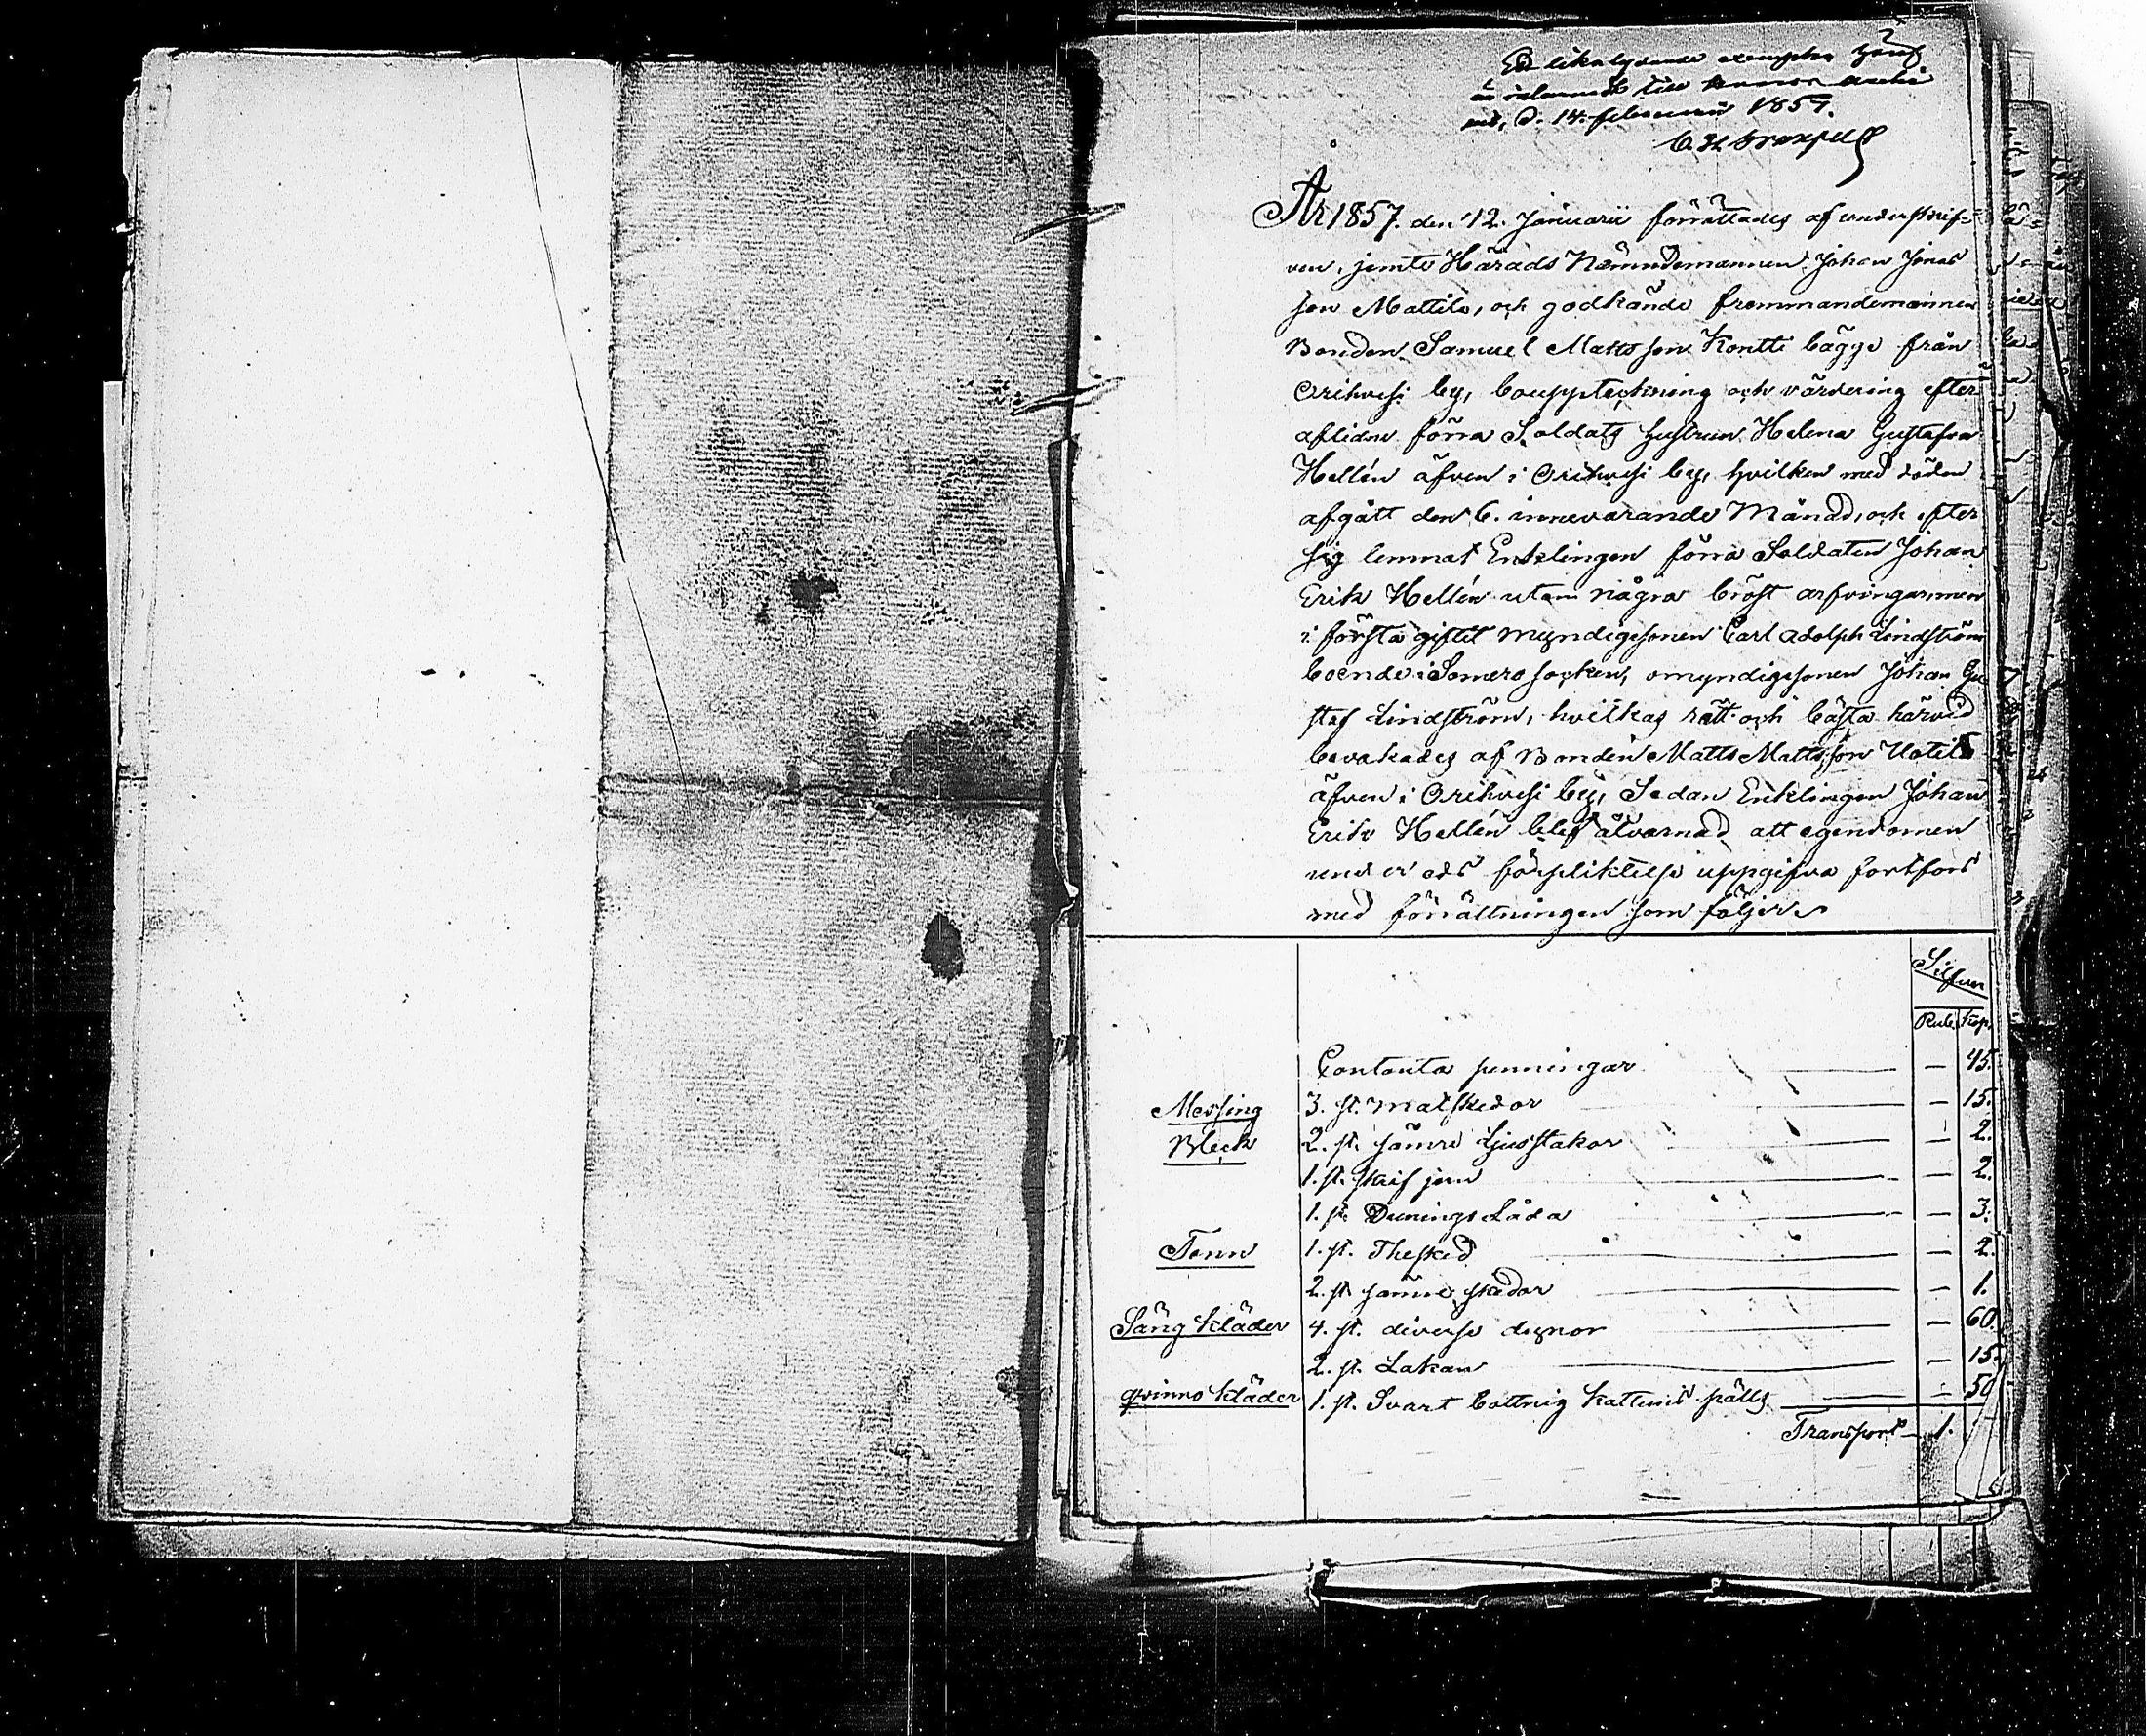 Ett lika lydande exemplar häraf
är inlemnadt till
d. 14. februarii 1857.
År 1857. den 12. Januarii förrättades af underskrif=
ven, jemte Härads Nämndemannen Johan Jonas
son Mattila, och godkände fremmandemannen
Bonden Samuel Mattsson Kontti bägge från
Orihvesi by, bouppteckning och värdering efter
aflidne förra Soldats hustrun Helena Gustafva
Hellén äfven i Orihvesi by, hvilken med döden
afgått den 6. innevarande Månad, och efter
sig lemnat Enklingen förra Soldaten Johan
Erik Hellén utom några bröst arfvingar, men
i första giftet myndigesonen Carl Adolph Lindström
boende i Somero socken, omyndigesonen Johan Gu
staf Lindström, hvilkas rätt och bästa härvid
bevakades af Bonden Matts Mattsson Uotila
äfven i Orihvesi by, Sedan Enklingen Johan
Erik Hellén blef åtvarnad att egendomen
under eds förpliktelse uppgifva fortfors
med förrättningen som följer
Silfver
Rub. Kop.
Contanta penningar — 45.
Messing 3. st. Matskedor — 15.
Bleck 2. st. sämre Ljusstakar — 2.
1. st. skrif jern — 2.
1. st. Låda — 3.
Tenn 1. st. Thesked — 2.
2. st. sämre skedar — 1.
Säng kläder 4. st. diverse dynor — 60.
2. st. Lakan — 15.
qvinno kläder 1. st. Svart bottnig kattuns pälts — 50
Transport 1.